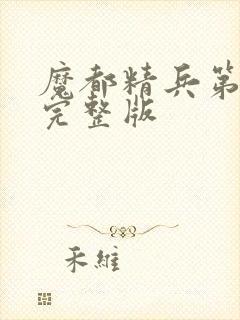 魔都精兵第
完整版
禾維